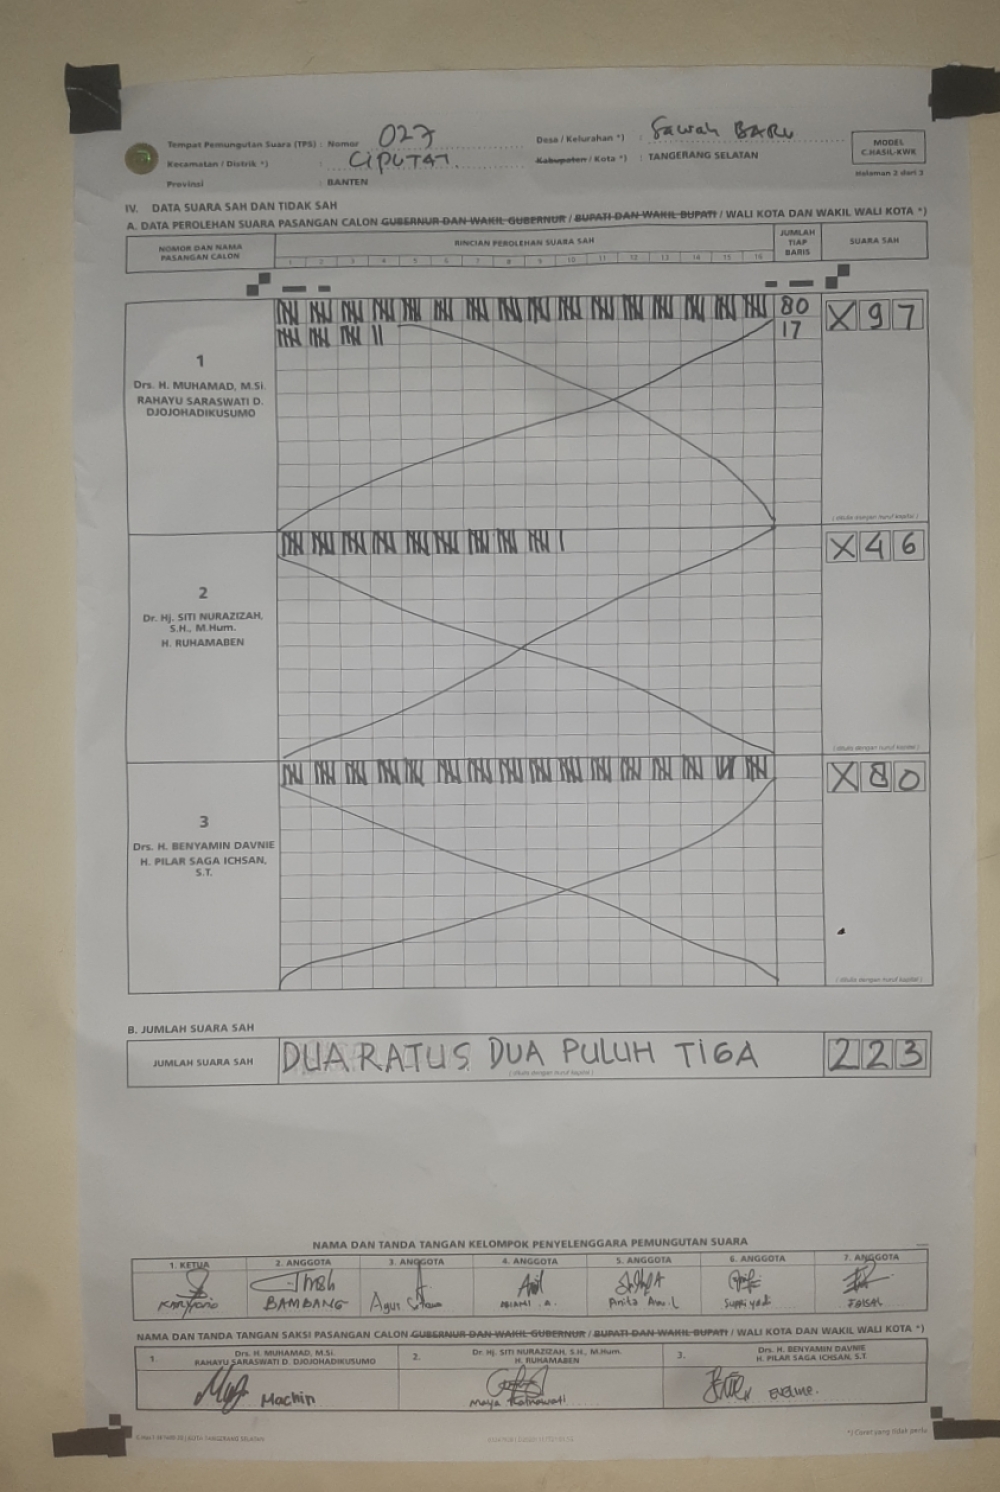 Tempat Pemungutan Suara (TPS) : Nomor : 027
Desa / Kelurahan *) : Sawah BARU
Kecamatan / Distrik *) : CIPUTAT
Kabupaten / Kota *) : TANGERANG SELATAN
Provinsi : BANTEN
MODEL
C.HASIL-KWK
Halaman 2 dari 3
IV. DATA SUARA SAH DAN TIDAK SAH
A. DATA PEROLEHAN SUARA PASANGAN CALON GUBERNUR DAN WAKIL GUBERNUR / BUPATI DAN WAKIL BUPATI / WALI KOTA DAN WAKIL WALI KOTA *)
NOMOR DAN NAMA
PASANGAN CALON
RINCIAN PEROLEHAN SUARA SAH
1 2 3 4 5 6 7 8 9 10 11 12 13 14 15 16
JUMLAH
TIAP
BARIS
SUARA SAH
1
Drs. H. MUHAMAD, M.Si.
RAHAYU SARASWATI D.
DJOJOHADIKUSUMO
80
17
X 9 7
( ditulis dengan huruf kapital )
2
Dr. Hj. SITI NURAZIZAH,
S.H., M.Hum.
H. RUHAMABEN
X 4 6
( ditulis dengan huruf kapital )
3
Drs. H. BENYAMIN DAVNIE
H. PILAR SAGA ICHSAN,
S.T.
X 8 0
( ditulis dengan huruf kapital )
B. JUMLAH SUARA SAH
JUMLAH SUARA SAH
DUA RATUS DUA PULUH TIGA
( ditulis dengan huruf kapital )
2 2 3
NAMA DAN TANDA TANGAN KELOMPOK PENYELENGGARA PEMUNGUTAN SUARA
1. KETUA 2. ANGGOTA 3. ANGGOTA 4. ANGGOTA 5. ANGGOTA 6. ANGGOTA 7. ANGGOTA
BAMBANG Agus Supriyadi FAISAL
NAMA DAN TANDA TANGAN SAKSI PASANGAN CALON GUBERNUR DAN WAKIL GUBERNUR / BUPATI DAN WAKIL BUPATI / WALI KOTA DAN WAKIL WALI KOTA *)
1. Drs. H. MUHAMAD, M.Si.
RAHAYU SARASWATI D. DJOJOHADIKUSUMO
Machin
2. Dr. Hj. SITI NURAZIZAH, S.H., M.Hum.
H. RUHAMABEN
Maya Ratnawati
3. Drs. H. BENYAMIN DAVNIE
H. PILAR SAGA ICHSAN, S.T.
EVELINE.
*) Coret yang tidak perlu